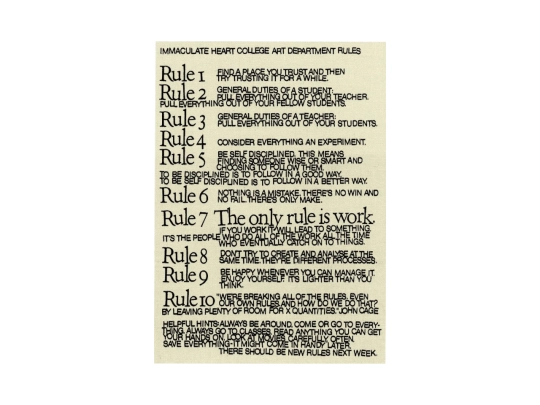 IMMACULATE HEART COLLEGE ART DEPARTMENT RULES
Rule 1 FIND A PLACE YOU TRUST AND THEN
TRY TRUSTING IT FOR A WHILE.
Rule 2 GENERAL DUTIES OF A STUDENT:
PULL EVERYTHING OUT OF YOUR TEACHER.
PULL EVERYTHING OUT OF YOUR FELLOW STUDENTS.
Rule 3 GENERAL DUTIES OF A TEACHER:
PULL EVERYTHING OUT OF YOUR STUDENTS.
Rule 4 CONSIDER EVERYTHING AN EXPERIMENT.
Rule 5 BE SELF DISCIPLINED. THIS MEANS
FINDING SOMEONE WISE OR SMART AND
CHOOSING TO FOLLOW THEM.
TO BE DISCIPLINED IS TO FOLLOW IN A GOOD WAY.
TO BE SELF DISCIPLINED IS TO FOLLOW IN A BETTER WAY.
Rule 6 NOTHING IS A MISTAKE. THERE'S NO WIN AND
NO FAIL. THERE'S ONLY MAKE.
Rule 7 The only rule is work.
IF YOU WORK IT WILL LEAD TO SOMETHING.
IT'S THE PEOPLE WHO DO ALL OF THE WORK ALL THE TIME
WHO EVENTUALLY CATCH ON TO THINGS.
Rule 8 DON'T TRY TO CREATE AND ANALYSE AT THE
SAME TIME. THEY'RE DIFFERENT PROCESSES.
Rule 9 BE HAPPY WHENEVER YOU CAN MANAGE IT.
ENJOY YOURSELF. IT'S LIGHTER THAN YOU
THINK.
Rule 10 "WE'RE BREAKING ALL OF THE RULES. EVEN
OUR OWN RULES AND HOW DO WE DO THAT?
BY LEAVING PLENTY OF ROOM FOR X QUANTITIES." JOHN CAGE
HELPFUL HINTS: ALWAYS BE AROUND. COME OR GO TO EVERY-
THING. ALWAYS GO TO CLASSES. READ ANYTHING YOU CAN GET
YOUR HANDS ON. LOOK AT MOVIES CAREFULLY, OFTEN.
SAVE EVERYTHING-IT MIGHT COME IN HANDY LATER.
THERE SHOULD BE NEW RULES NEXT WEEK.